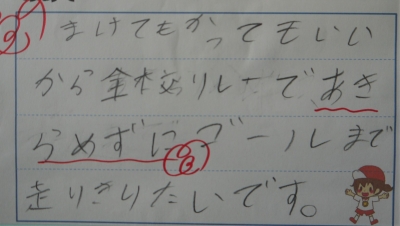 まけてもかってもいい
から全校リレーであき
らめずにゴールまで
走りきりたいです。